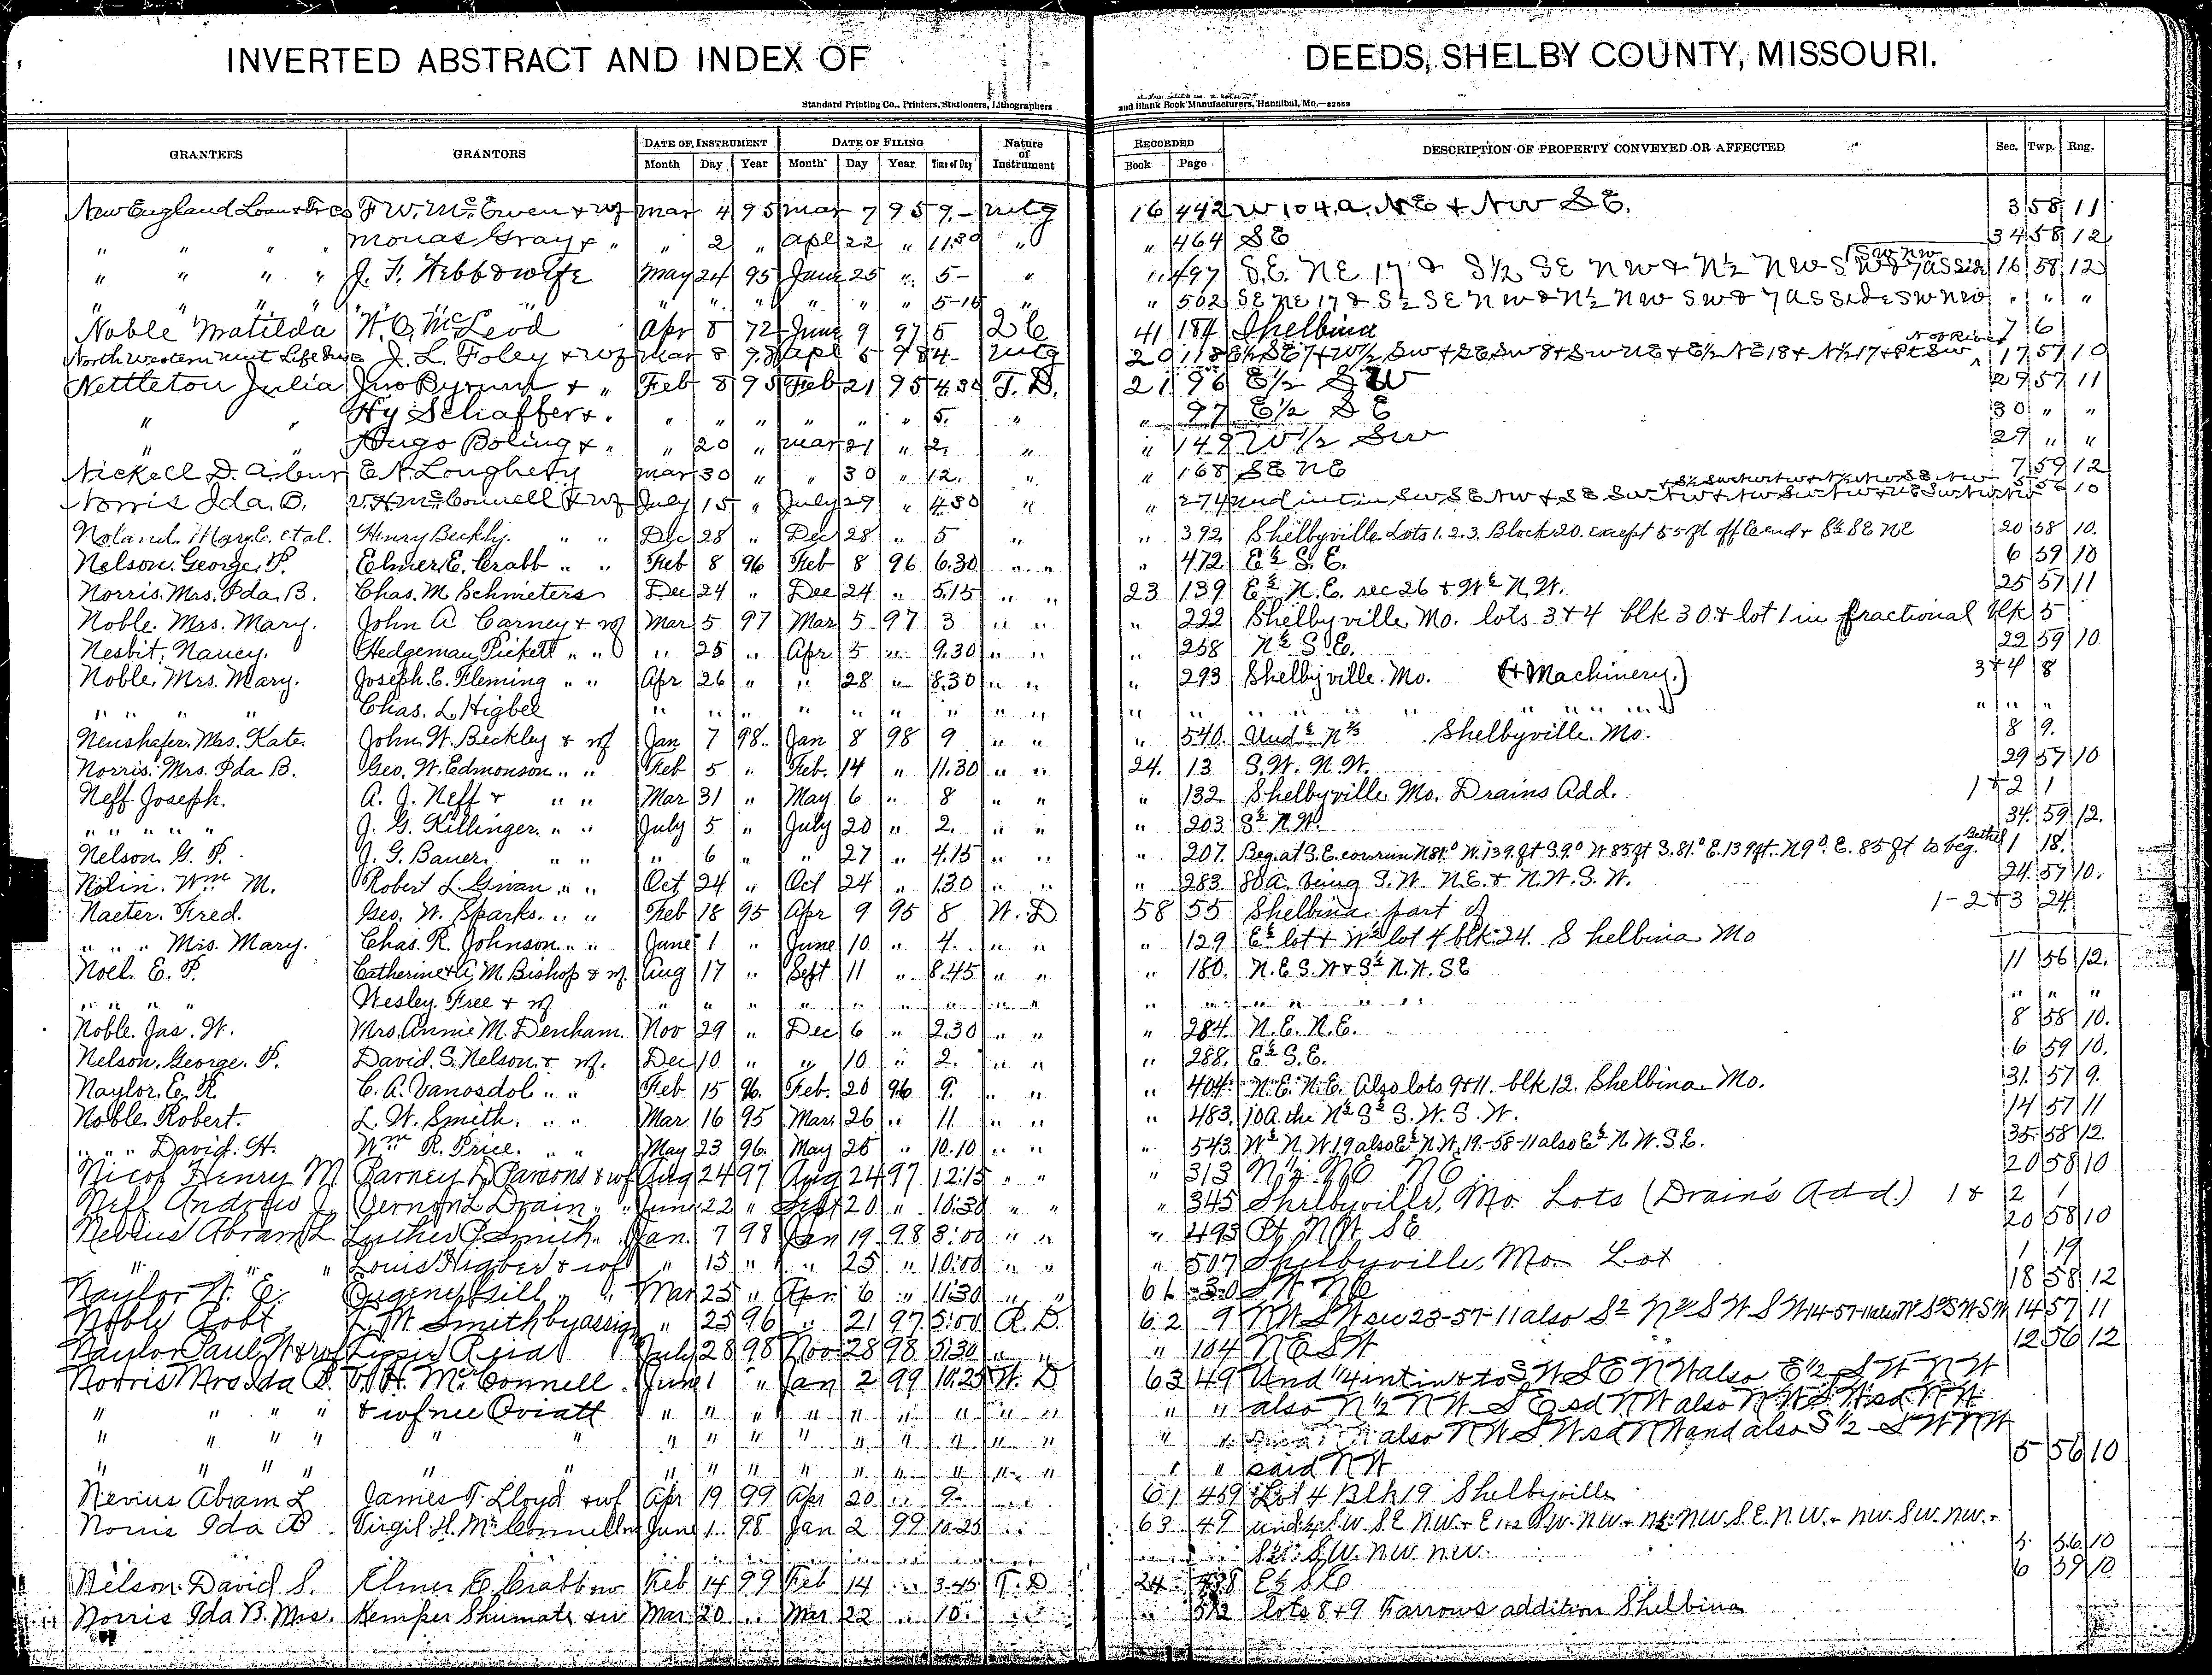 INVERTED ABSTRACT AND INDEX OF DEEDS, SHELBY COUNTY, MISSOURI.
Standard Printing Co., Printers, Stationers, Lithographers and Blank Book Manufacturers, Hannibal, Mo.—82658
GRANTEES GRANTORS DATE OF INSTRUMENT DATE OF FILING Nature of Instrument RECORDED DESCRIPTION OF PROPERTY CONVEYED OR AFFECTED Sec. Twp. Rng.
Month Day Year Month Day Year Time of Day Book Page
New England Loan & Tr Co F W. Mc Ewen & wf Mar 4 95 Mar 7 95 9- Mtg 16 442 W 104 a. NE & NW SE. 3 58 11
" " " " Gray & " " 2 " Apl 22 " 11.30 " " 464 SE 34 58 12
" " " " J. F. Webb & wife May 24 95 June 25 " 5- " " 497 S.E. NE 17 & S½ SE NW & N½ NW SW & 7 a S side SW NW 16 58 12
" " " " " " " " " " " " 5-10 " " 502 SE NE 17 & S½ SE NW & N½ NW SW & 7 a S side SW NW " " "
Noble Matilda W. O. McLeod Apr 8 72 June 9 97 5 2 C 41 184 Shelbina 7 6
North Western Mut Life Ins Co J. L. Foley & wf Mar 8 98 Apl 5 98 4- Mtg 20 118 E½ SE 7 & W½ SW & SE SW 8 & SW NE & E½ NE 18 & N½ 17 & Pt SW N of River 17 57 10
Nettleton Julia Jno Byrum & " Feb 8 95 Feb 21 95 4.30 T. D. 21 96 E½ SW 29 57 11
" " Hy Schaffer & . " " " " " " 5. " " 97 E½ SE 30 " "
" " Hugo Boling & . " 20 " Mar 21 " 2. " " 149 W½ SW 29 " "
Nickell D. Wilbur E N. Loughery Mar 30 " " 30 " 12. " " 168 SE NE 7 59 12
Norris Ida. B. V. H. McConnell & wf July 15 " July 29 " 4.30 " " 274 Und int in SW SE NW & SE SW NW & NW SW NW 5 56 10
Noland. Mary E. et al. Henry Beckly. " " Dec 28 " Dec 28 " 5 " " 392 Shelbyville. Lots 1. 2. 3. Block 20. except 55 ft off E end & S½ SE NE 20 58 10.
Nelson. George. P. Elmer E. Crabb " " Feb 8 96 Feb 8 96 6.30 " " " 472 E½ S. E. 6 59 10
Norris. Mrs. Ida. B. Chas. M Schmieters Dec 24 " Dec 24 " 5.15 " " 23 139 E½ N. E. sec 26 & W½ N. W. 25 57 11
Noble. Mrs. Mary. John A Carney & wf Mar 5 97 Mar 5 97 3 " " " 222 Shelbyville. Mo. lots 3 & 4 blk 30 & lot 1 in fractional blk 5
Nesbit. Nancy. Hedgeman Pickett " " " 25 " Apr 5 " 9.30 " " " 258 N½ S. E. 22 59 10
Noble. Mrs. Mary. Joseph. E. Fleming " " Apr 26 " " 28 " 8.30 " " " 293 Shelbyville. Mo. (& Machinery.) 3 & 4 8
" " " " Chas. L. Higbee " " " " " " " " " " " " " " " " " " " " "
Neushafer. Mrs. Kate. John. W. Beckley & wf Jan 7 98. Jan 8 98 9 " " " 540. Und ½ N⅔ Shelbyville. Mo. 8 9.
Norris. Mrs. Ida. B. Geo. W. Edmonson " " Feb 5 " Feb. 14 " 11.30 " " 24. 13 S. W. N. W. 29 57 10
Neff. Joseph. A. J. Neff & " " Mar 31 " May 6 " 8 " " " 132. Shelbyville. Mo. Drains Add. 1 & 2 1
" " " " " J. G. Killinger. " " July 5 " July 20 " 2. " " " 203 S½ N. W. 34. 59 12.
Nelson. G. P. J. G. Bauer. " " " 6 " " 27 " 4.15 " " " 207. Beg. at S. E. cor run N 81.° W. 139. ft S. 9.° W 85 ft S. 81.° E. 139 ft. N 9°. E. 85 ft to beg. Bethel 1 18.
Nolin. Wm M. Robert L. Givan " " Oct 24 " Oct 24 " 1.30 " " " 283. 80 a. being S. W. N. E. & N. W. S. W. 24. 57 10.
Naeter. Fred. Geo. W. Sparks. " " Feb 18 95 Apr 9 95 8 W. D 58 55 Shelbina part of 1-2 & 3 24
" " " Mrs. Mary. Chas. R. Johnson " " June 1 " June 10 " 4. " " " 129 E½ lot & W½ lot 4 blk. 24. Shelbina Mo
Noel. E. P. Catherine & A. M. Bishop & wf. Aug 17 " Sept 11 " 8.45 " " " 180. N. E. S. W & S½ N. W. SE 11 56 12.
" " " " Wesley. Free & wf " " " " " " " " " " " " " " " " " "
Noble. Jas. W. Mrs. Annie M. Denham. Nov 29 " Dec 6 " 2.30 " " " 284. N. E. N. E. 8 58 10.
Nelson. George. P. David. S. Nelson. & wf. Dec 10 " " 10 " 2. " " " 288. E½ S. E. 6 59 10.
Naylor. E. R. C. A. Vanosdol " " Feb 15 96. Feb. 20 96 9. " " " 404. N. E. N. E. Also lots 9 & 11. blk 12. Shelbina Mo. 31. 57 9.
Noble. Robert. L. W. Smith. " " Mar 16 95 Mar. 26 " 11 " " " 483. 10 A. the N½ S½ S. W. S. W. 14 57 11
" " " David. H. Wm R. Price. " " May 23 96. May 25 " 10.10 " " " 543. W½ N. W. 19 also E½ N. W. 19-58-11 also E½ N. W. S. E. 35. 58 12.
Nicol Henry M. Barney L. Parsons & wf Aug 24 97 Aug 24 97 12:15 " " " 313 N½ NE NE 20 58 10
Neff Andrew J. Vernon L Drain " " June 22 " Sept 20 " 10:30 " " " 345 Shelbyville, Mo. Lots (Drain's Add.) 1 & 2 1
Nevius Abram L. Luther P. Smith. " Jan. 7 98 Jan 19 98 3:00 " " " 493 Pt NW SE 20 58 10
" " " Louis Higbee & wf " 15 " " 25 " 10:00 " " " 507 Shelbyville, Mo. Lot 1 19
Naylor W. E. Eugene Sill " " Mar 25 " Apr 6 " 11:30 " " 61 30 SW NE 18 58 12
Noble Robt L. W. Smith by assig " 25 96 " 21 97 5:00 R. D. 62 9 NW SW sec 23-57-11 also S½ N½ SW SW 14-57-11 also N½ S½ SW SW 14 57 11
Naylor Paul W & wf Lizzie Reid July 28 98 Nov 28 98 5:30 " " " 104 NE SW 12 56 12
Norris Mrs Ida B. V. H. McConnell June 1 " Jan 2 99 10:25 W. D 63 49 Und ¼ int in & to SW SE NW also E½ SW NW
" " " " & wf nee Oviatt " " " " " " " " " " " also N½ NW SE sd NW also NW SW sd NW
" " " " " " " " " " " " " " " " " also NW SW sd NW and also S½ SW NW
" " " " " " " " " " " " " " " " " said NW 5 56 10
Nevius Abram L James T. Lloyd & wf Apr 19 99 Apr 20 " 9- " " 61 459 Lot 4 Blk 19 Shelbyville
Norris Ida B Virgil H. McConnell June 1 98 Jan 2 99 10.25 " " 63 49 und ¼ S.W. S.E. N.W. & E½ S.W. N.W. & N½ N.W. S.E. N.W. & N.W. S.W. N.W. &
S½ S.W. N.W. N.W. 5 56 10
Nelson. David S. Elmer E. Crabb Feb 14 99 Feb 14 " 3.45 T. D 24 E½ SE 6 59 10
Norris Ida B. Mrs. Kemper Shumate Mar 20 " Mar 22 " 10. " " lots 8 & 9 Farrows addition Shelbina